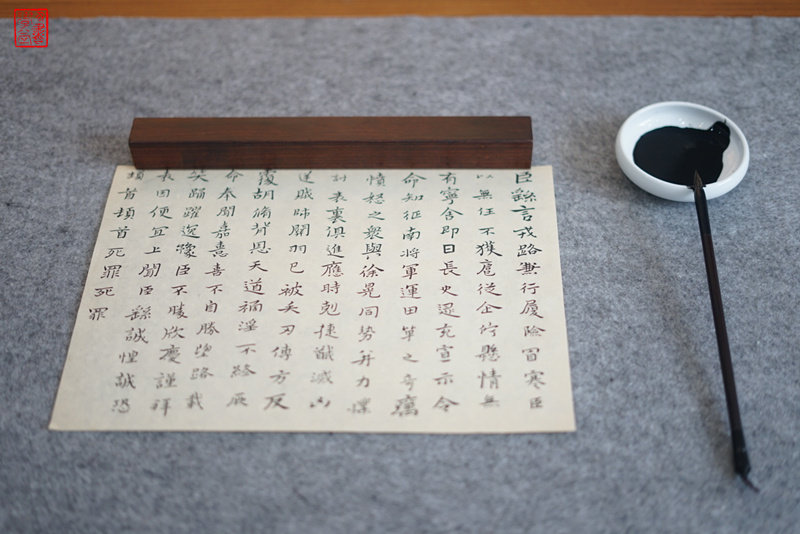 臣繇言戎路兼行履險冒寒臣
以無任不獲扈從企佇懸情無
有寧舍即日長史逯充宣示令
命知征南將軍運田單之奇厲
憤怒之衆與徐晃同勢并力撲
討表裏俱進應時剋捷馘滅凶
逆賊帥關羽已被矢刃傅方反
覆胡脩背恩天道禍淫不終厥
命奉聞嘉憙喜不自勝望路載
笑踊躍逸豫臣不勝欣慶謹拜
表因便宜上聞臣繇誠惶誠恐
頓首頓首死罪死罪